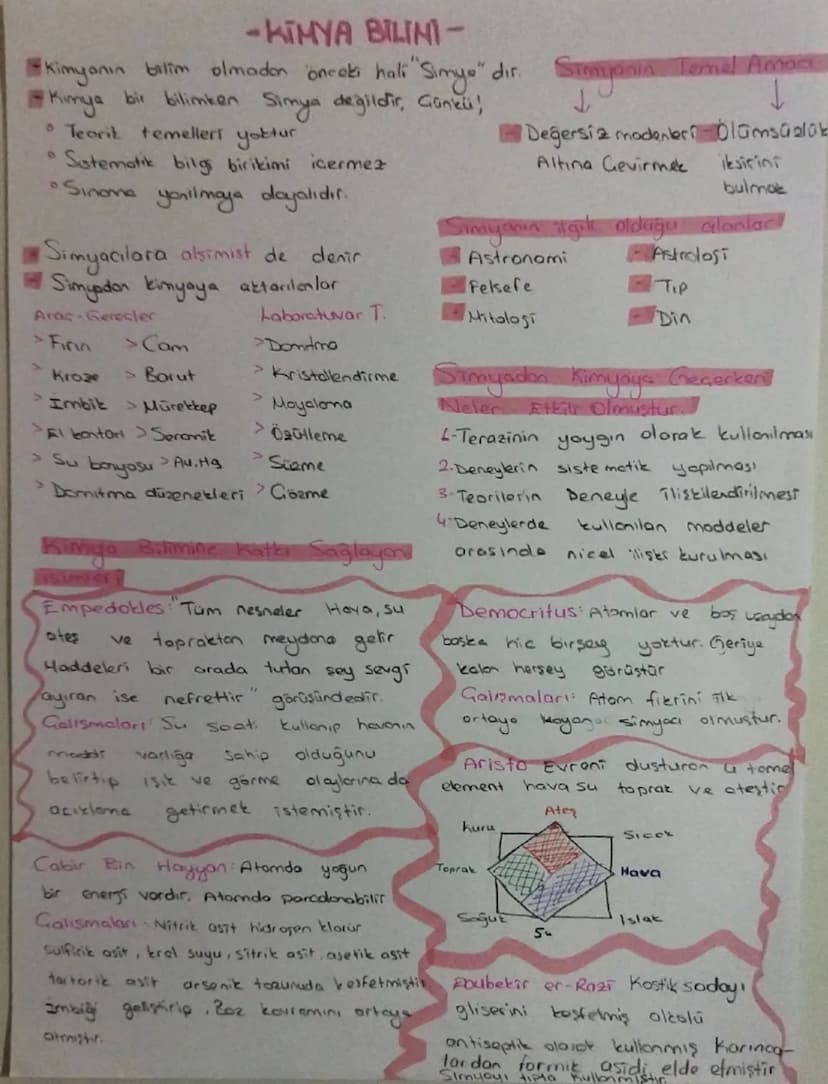 -KİMYA BİLİMİ-
Kimyanın bilim olmadan önceki hali "Simya" dır.
Kimya bir bilimken Simya değildir, Çünkü!
° Teorik temelleri yoktur
° Sistematik bilgi birikimi içermez
° Sınama yanılmaya dayalıdır.
Simyanın Temel Amacı
Değersiz madenleri
Altına Çevirmek
- Ölümsüzlük
iksirini
bulmak
Simyacılara alşimist de denir
Simyadan kimyaya aktarılanlar
Araç-Gereçler
> Fırın > Cam
> Kroze > Barut
> İmbik > Mürekkep
> El kantarı > Seramik
> Su banyosu > Au,Hg
> Damıtma düzenekleri
Laboratuvar T.
> Damıtma
> Kristallendirme
> Mayalama
> Özütleme
> Süzme
> Çözme
Simyanın ilgili olduğu alanlar
- Astronomi - Astroloji
- Felsefe - Tıp
- Mitoloji - Din
Simyadan Kimyaya Geçerken
Neler Etkili Olmuştur.
1-Terazinin yaygın olarak kullanılması
2.Deneylerin sistematik yapılması
3-Teorilerin Deneyle ilişkilendirilmesi
4-Deneylerde kullanılan maddeler
arasında nicel ilişki kurulması
Kimya Bilimine Katkı Sağlayan
isimler
Empedokles: "Tüm nesneler Hava, su
ateş ve topraktan meydana gelir
Maddeleri bir arada tutan şey sevgi
ayıran ise nefrettir" görüşündedir.
Çalışmaları: Su saati kullanıp havanın
maddi varlığa sahip olduğunu
belirtip ışık ve görme olaylarına da
açıklama getirmek istemiştir.
Democritus: Atomlar ve boş uzaydan
başka hiç birşey yoktur. Geriye
kalan herşey görüştür
Çalışmaları: Atom fikrini ilk
ortaya koyan simyacı olmuştur.
Aristo Evreni oluşturan 4 temel
element hava su toprak ve ateştir
Ateş
kuru
Sıcak
Toprak
Hava
Soğuk
Islak
Su
Cabir Bin Hayyan: Atomda yoğun
bir enerji vardır. Atomda parçalanabilir
Çalışmaları - Nitrik asit hidrojen klorür
sülfirik asit, kral suyu, sitrik asit, asetik asit
tartarik asit arsenik tozunuda keşfetmiştir
İmbiği geliştirip, Baz kavramını ortaya
atmıştır.
Ebubekir er-Razi Kostik sodayı
gliserini keşfelmiş alkolü
antiseptik olarak kullanmış Karınca-
lardan formik asidi elde etmiştir
Simyayı tıpta kullanmıştır.